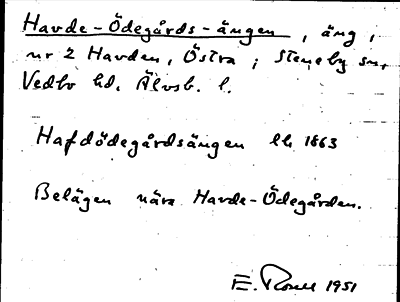 Havde-Ödegårds-ängen, äng i
nr 2 Havden, Östra; Steneby sn,
Vedbo hd. Älvsb. l.
Hafdödegårdsängen lh 1863
Belägen nära Havde-Ödegården.
E. 1951